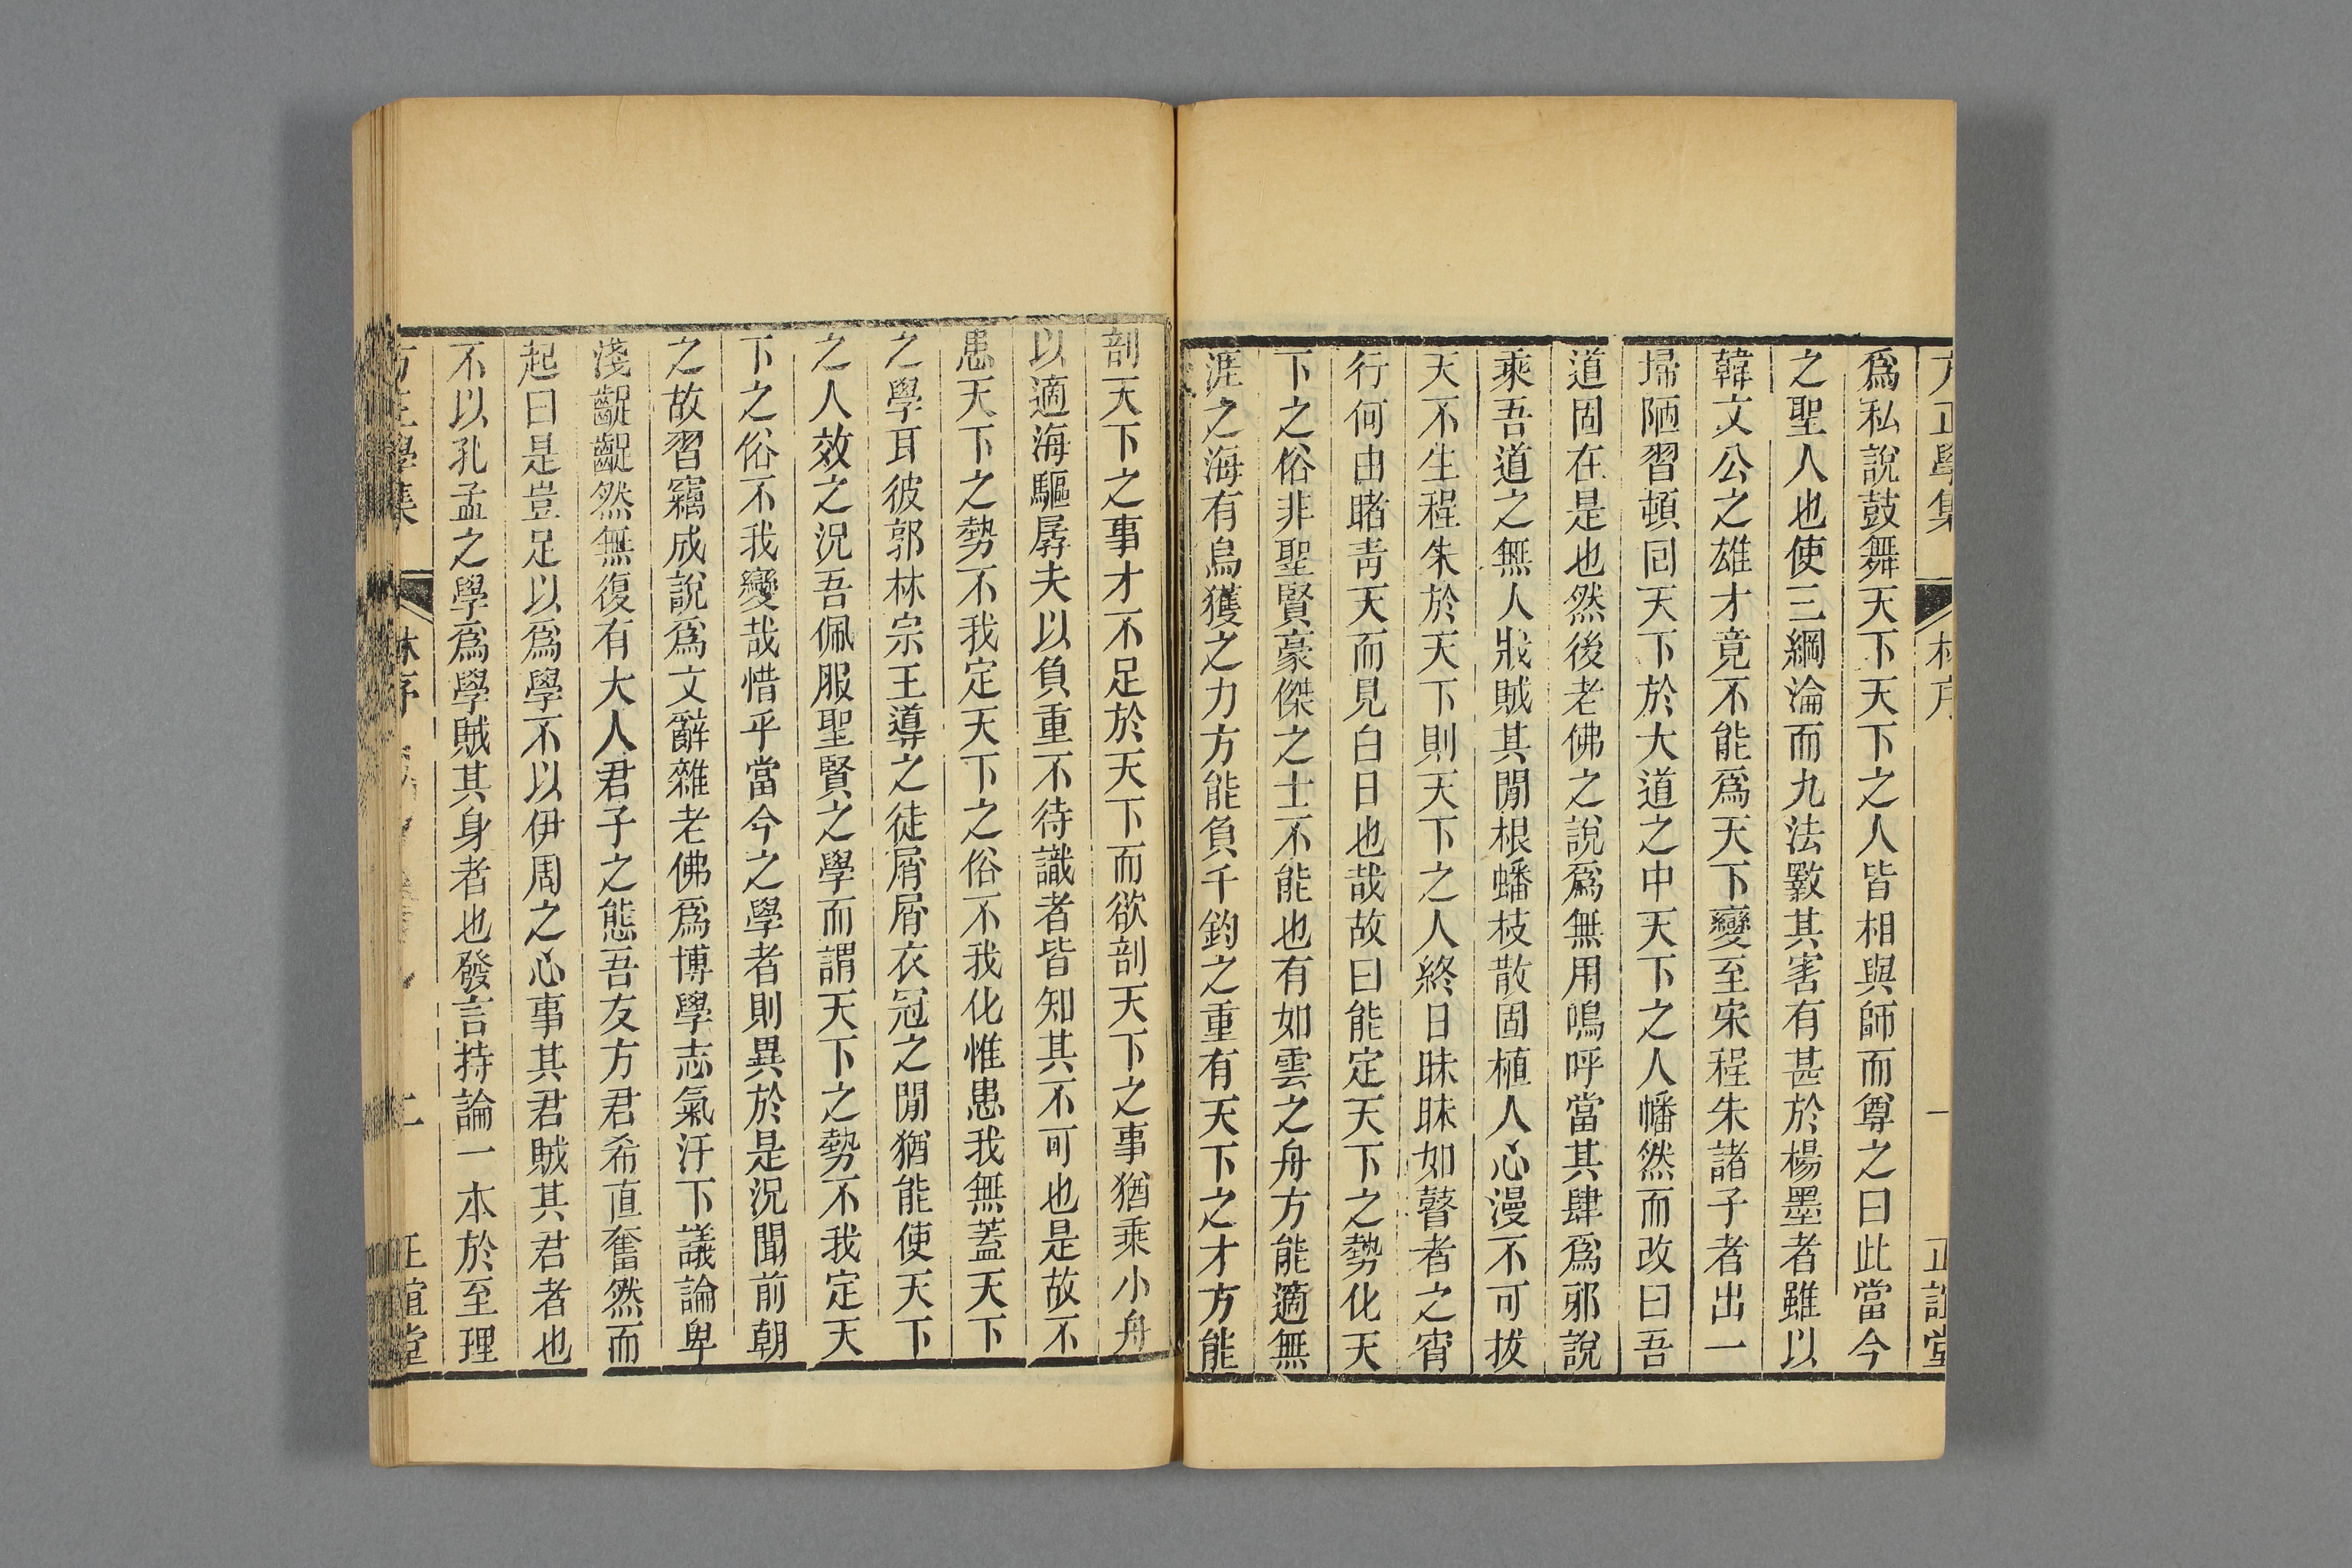 方正學集 林序 一 正誼堂
爲私說鼓舞天下天下之人皆相與師而尊之曰此當今
之聖人也使三綱淪而九法斁其害有甚於楊墨者雖以
韓文公之雄才竟不能爲天下變至宋程朱諸子者出一
埽陋習頓囘天下於大道之中天下之人幡然而改曰吾
道固在是也然後老佛之說爲無用嗚呼當其肆爲邪說
乘吾道之無人戕賊其閒根蟠枝散固植人心漫不可拔
天不生程朱於天下則天下之人終日昧昧如瞽者之宵
行何由睹靑天而見白日也哉故曰能定天下之勢化天
下之俗非聖賢豪傑之士不能也有如雲之舟方能適無
涯之海有烏獲之力方能負千鈞之重有天下之才方能
剖天下之事才不足於天下而欲剖天下之事猶乘小舟
以適海驅孱夫以負重不待識者皆知其不可也是故不
患天下之勢不我定天下之俗不我化惟患我無蓋天下
之學耳彼郭林宗王導之徒屑屑衣冠之閒猶能使天下
之人效之況吾佩服聖賢之學而謂天下之勢不我定天
下之俗不我變哉惜乎當今之學者則異於是況聞前朝
之故習竊成說爲文辭雜老佛爲博學志氣汙下議論卑
淺齪齪然無復有大人君子之態吾友方君希直奮然而
起曰是豈足以爲學不以伊周之心事其君賊其君者也
不以孔孟之學爲學賊其身者也發言持論一本於至理
方正學集 林序 二 正誼堂